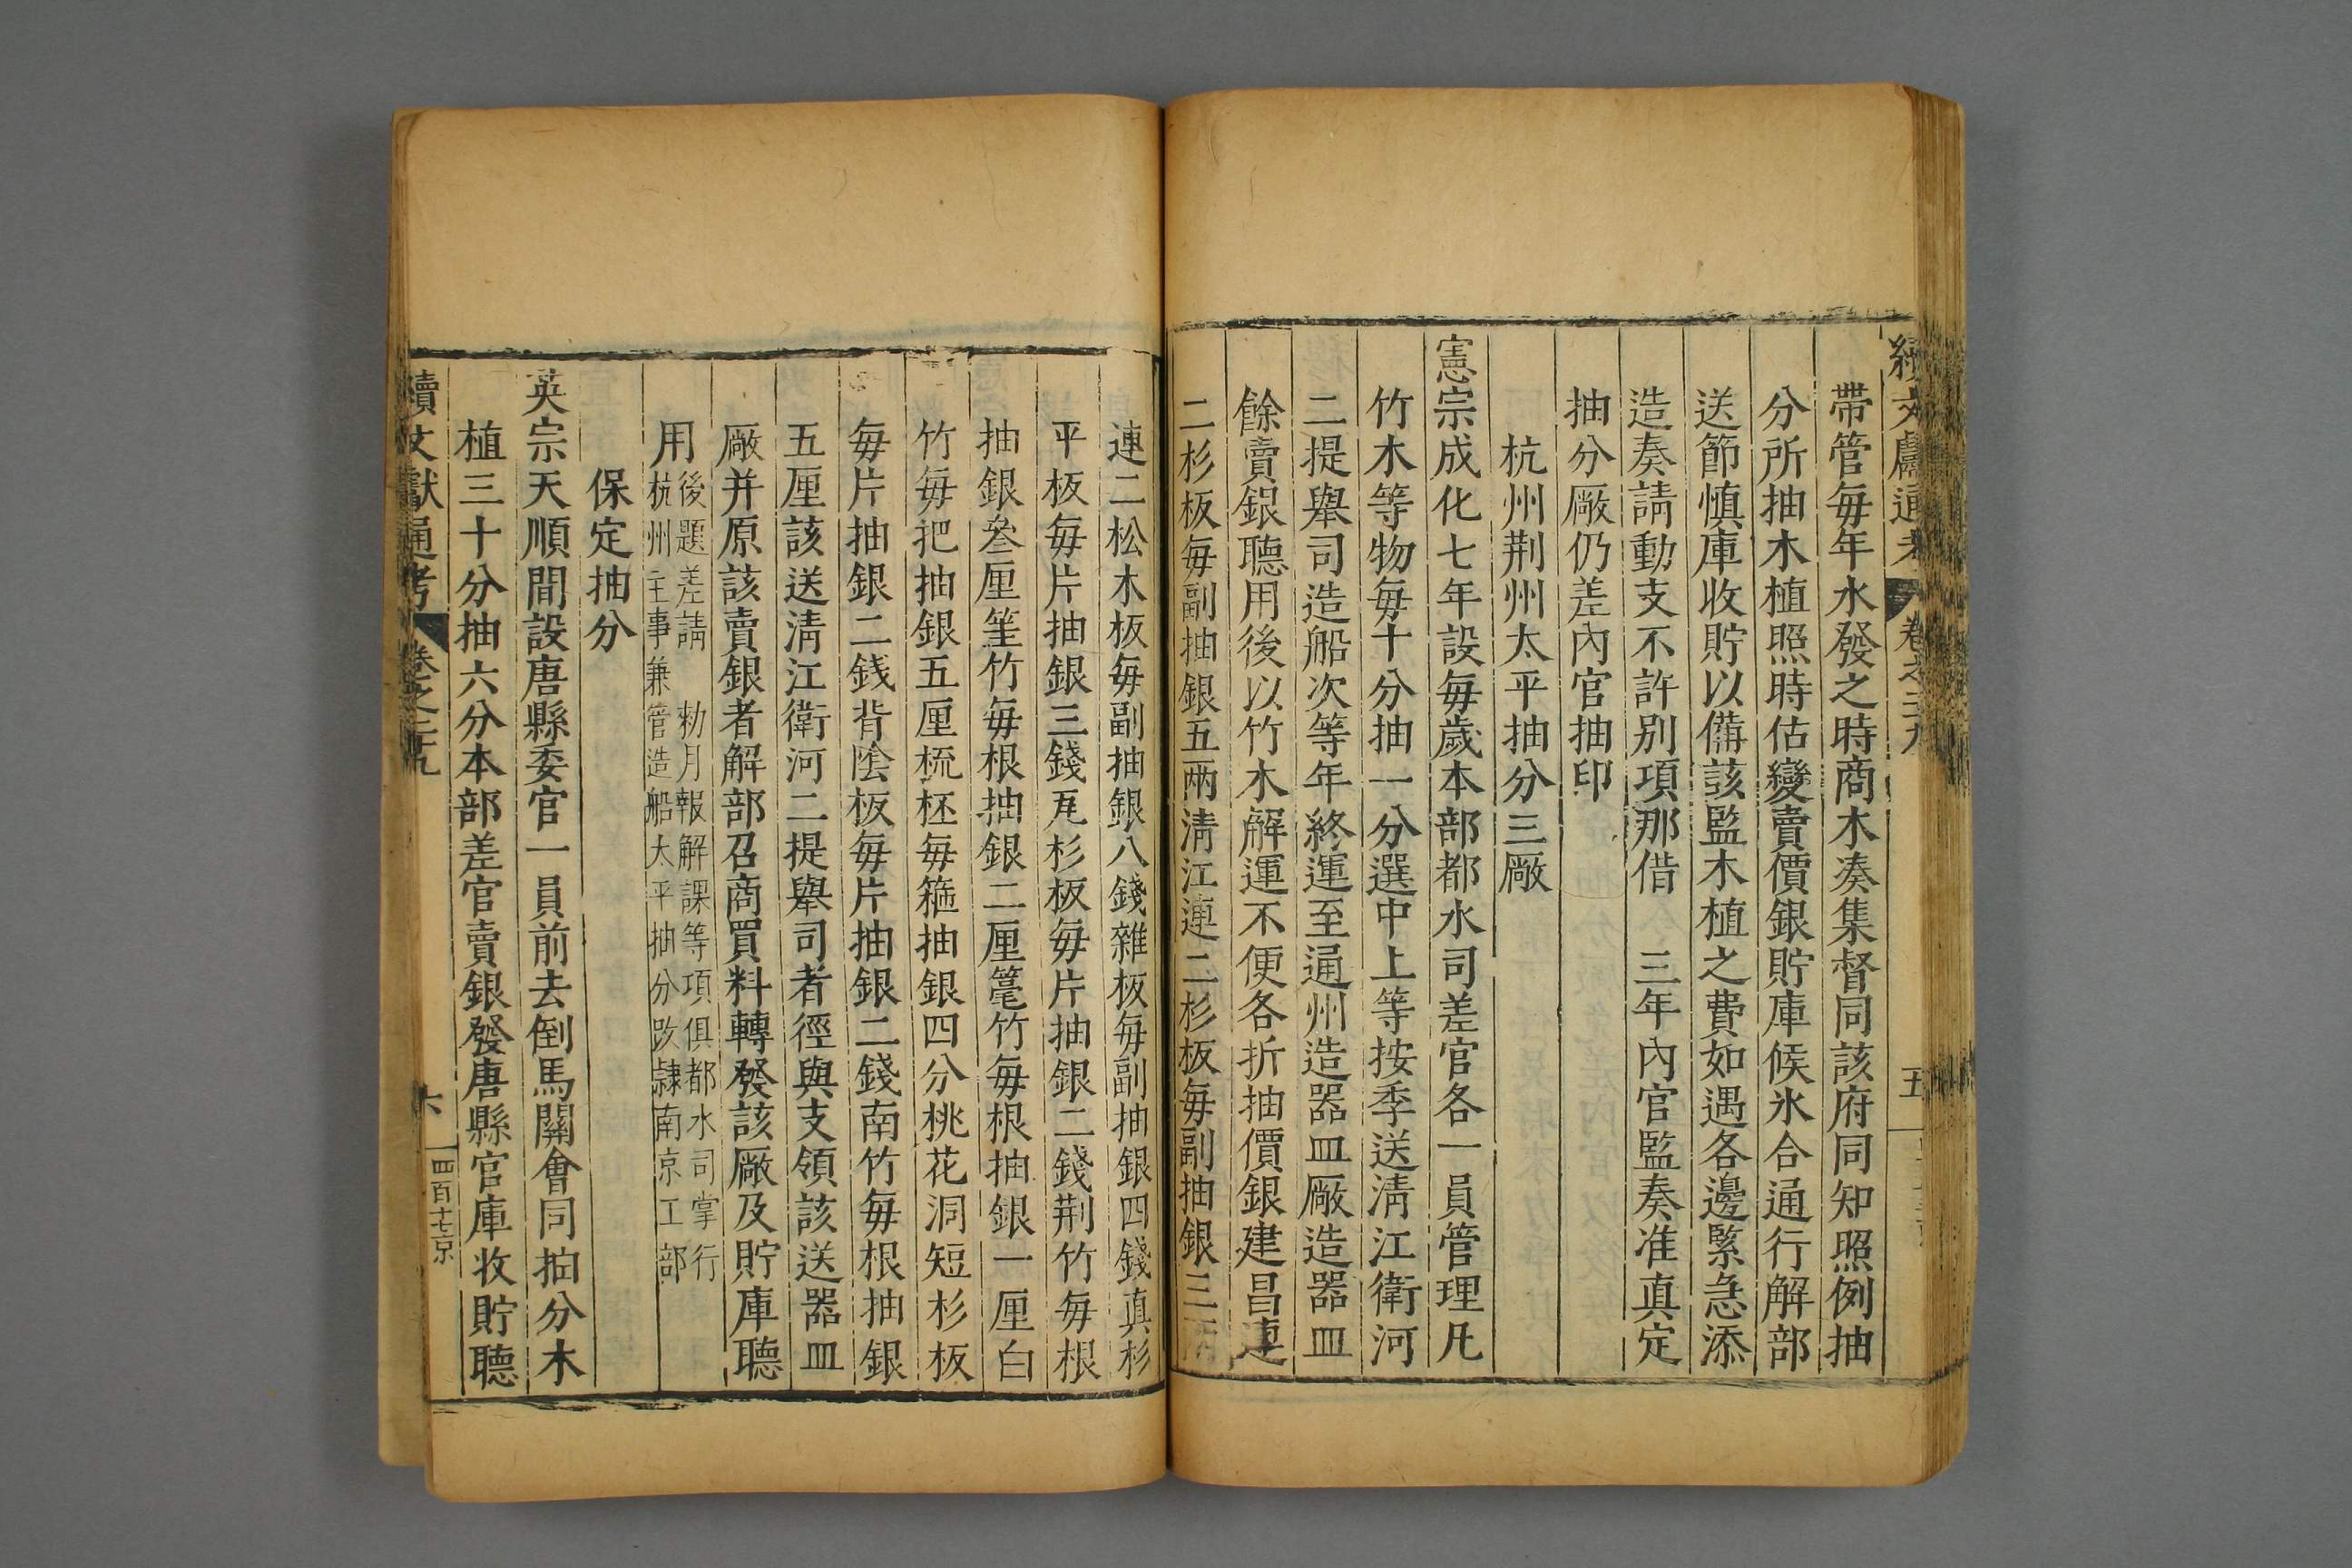 續文獻通考 卷之二九 五
帶管每年水發之時商木湊集督同該府同知照例抽
分所抽木植照時估變賣價銀貯庫候氷合通行解部
送節慎庫收貯以備該監木植之費如遇各邊緊急添
造奏請動支不許別項那借 三年內官監奏准真定
抽分厰仍差內官抽印
杭州荆州太平抽分三厰
憲宗成化七年設每歲本部都水司差官各一員管理凡
竹木等物每十分抽一分選中上等按季送清江衛河
二提舉司造船次等年終運至通州造器皿厰造器皿
餘賣銀聽用後以竹木解運不便各折抽價銀建昌連
二杉板每副抽銀五兩清江連二杉板每副抽銀三兩
連二松木板每副抽銀八錢雜板每副抽銀四錢真杉
平板每片抽銀三錢瓦杉板每片抽銀二錢荆竹每根
抽銀叄厘筀竹每根抽銀二厘篾竹每根抽銀一厘白
竹每把抽銀五厘梳柸每箍抽銀四分桃花洞短杉板
每片抽銀二錢背陰板每片抽銀二錢南竹每根抽銀
五厘該送清江衛河二提舉司者徑與支領該送器皿
厰并原該賣銀者解部召商買料轉發該厰及貯庫聽
用
後題差請 勅月報解課等項俱都水司掌行
杭州主事兼管造船太平抽分改隷南京工部
保定抽分
英宗天順間設唐縣委官一員前去倒馬關會同抽分木
植三十分抽六分本部差官賣銀發唐縣官庫收貯聽
續文獻通考 卷之二九 六 四百十七京